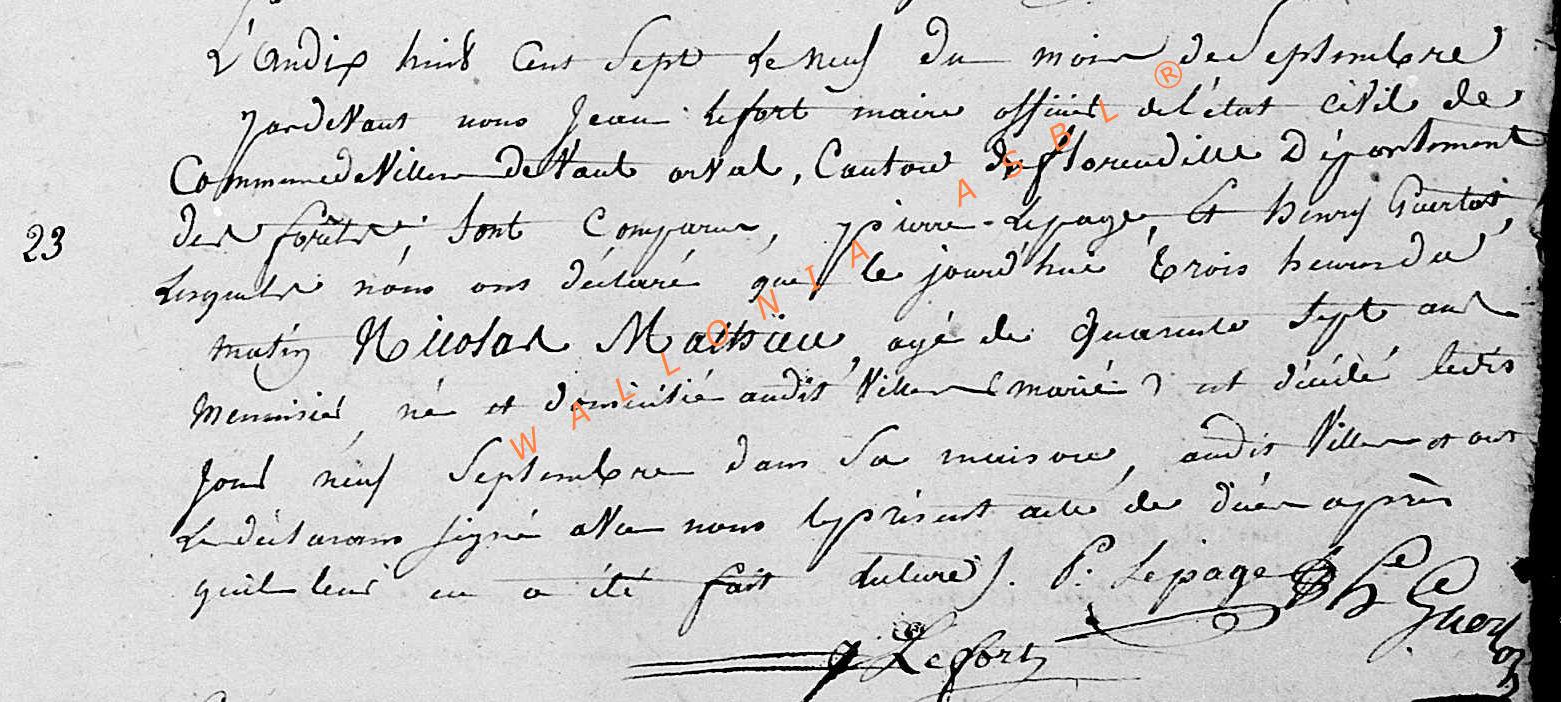 L'an dix huit Cent Sept le neuf du mois de Septembre
pardevant nous Jean Lefort maire officier de l'état civil de
Commune de Villers devant orval, Canton de florenville Département
des forêts, sont Comparus, pierre Lepage, et henry Guerlot,
Lesquels nous ont déclaré que le jourd'hui trois heures du
23
matin Nicolas Mathieu, agé de quarante Sept ans
Menuisié, né et domicilié audit Villers (marié) est décédé ledis
Jour neuf Septembre dans sa maison, audit Villers et ont
Le déclarans signé avec nous le présent acte de décès après
quil leur en a été fait lecture. P. Lepage h Guerlot
J Lefort
WALLONIA ASBL ®